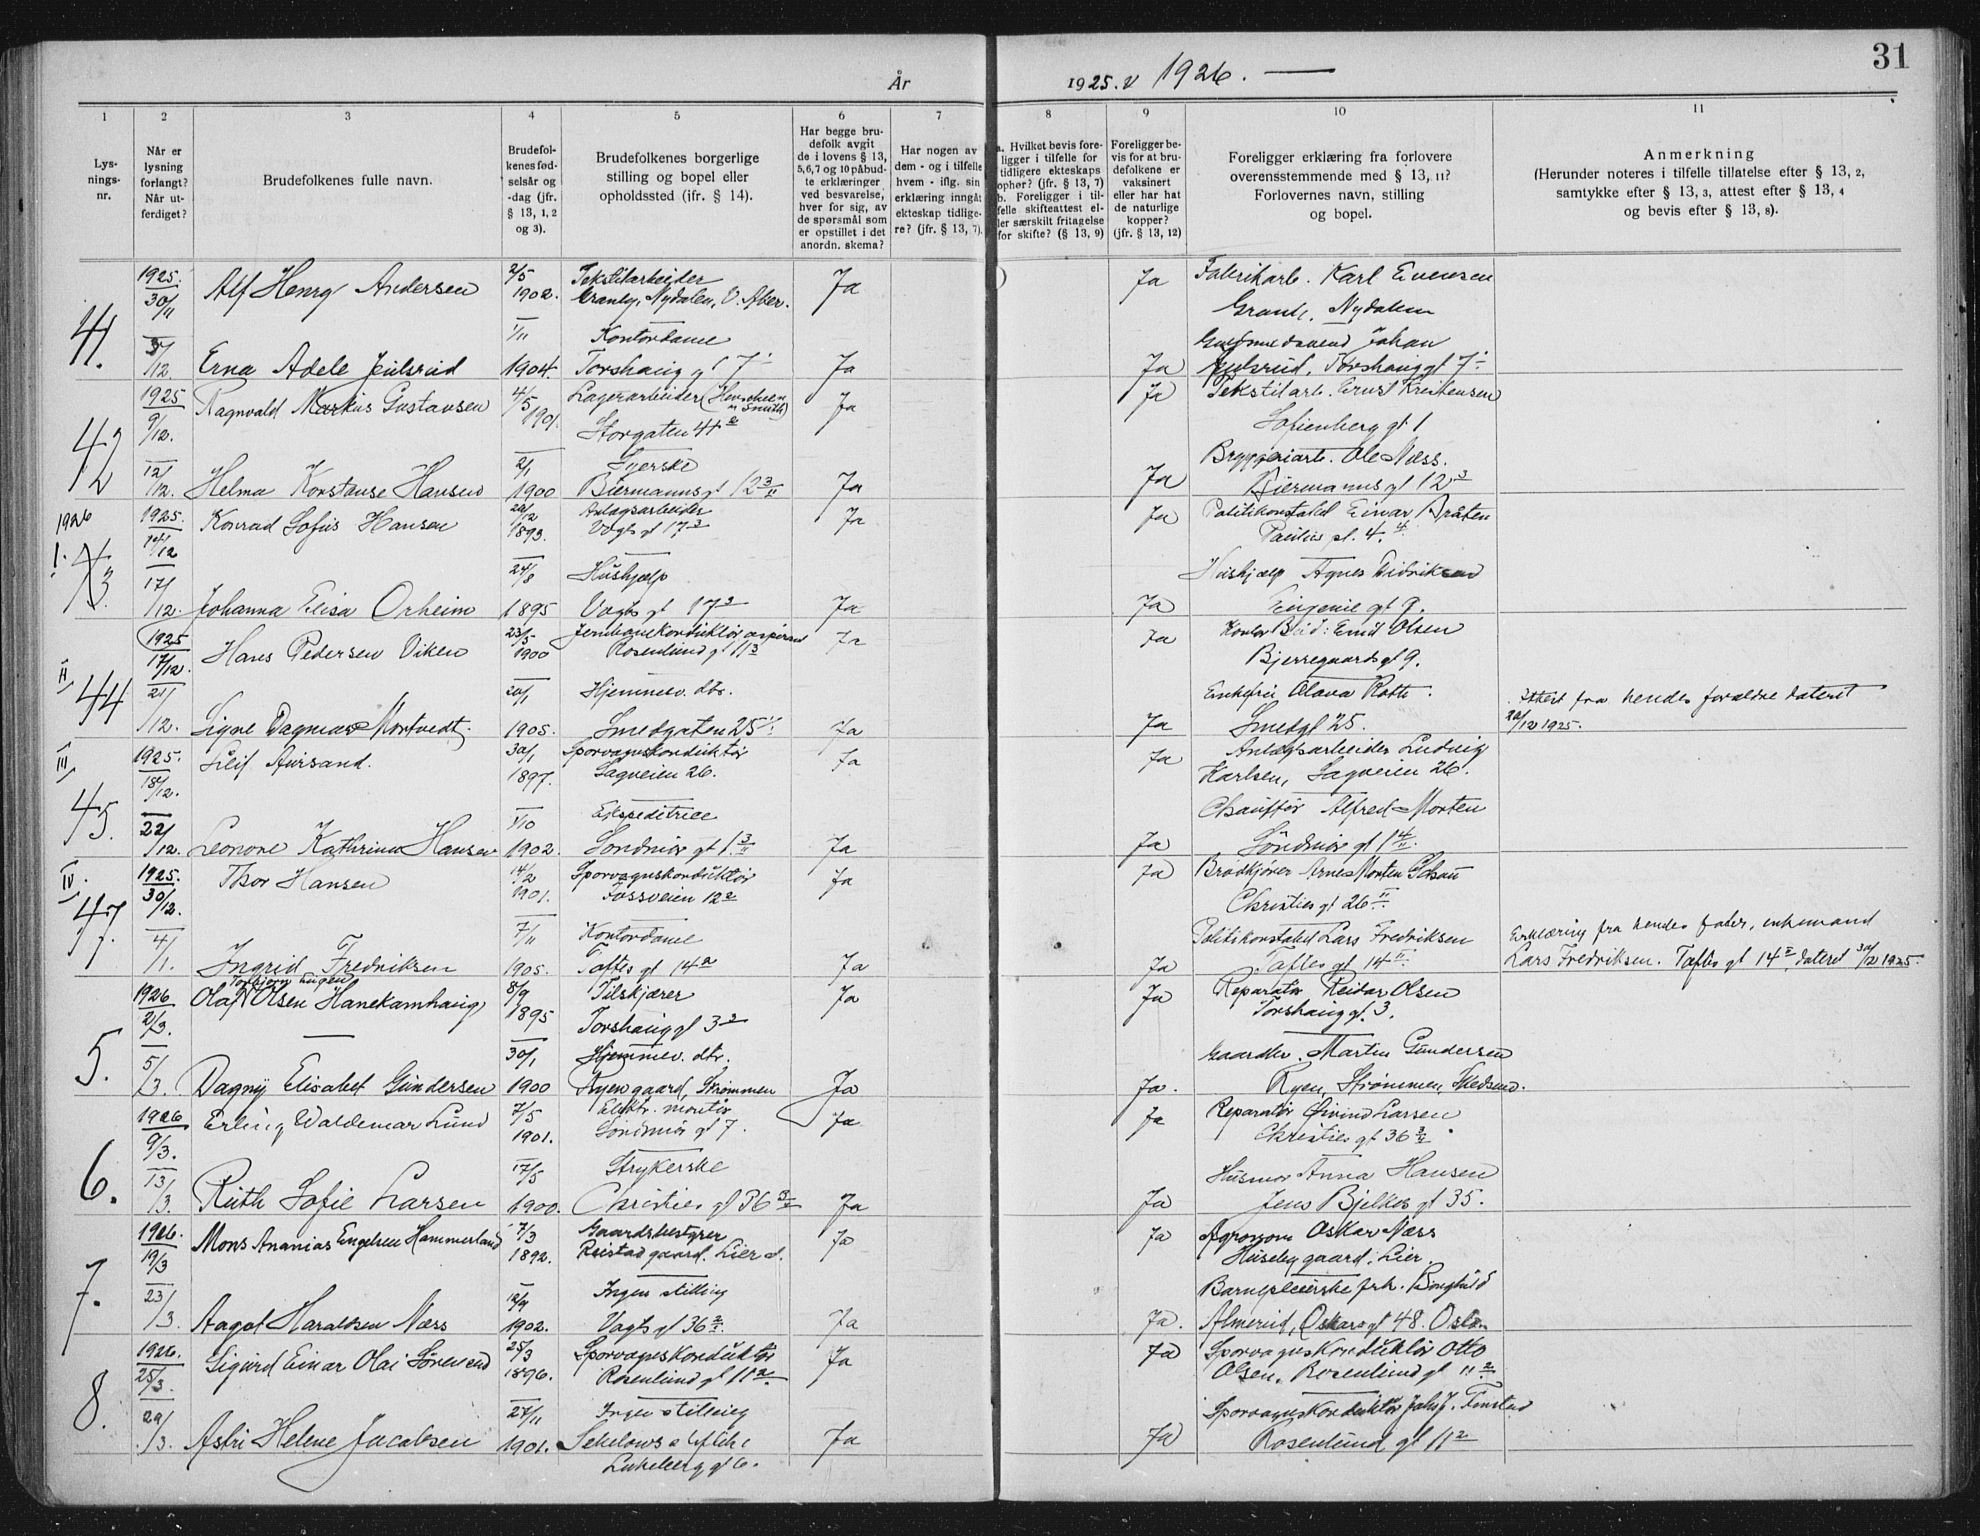 31
År 1925. 1926.
1 2 3 4 5 6 7 8 9 10 11
Lys-
nings-
nr.
Når er
lysning
forlangt?
Når ut-
ferdiget?
Brudefolkenes fulle navn.
Brudefol-
kenes fød-
selsår og
-dag (jfr.
§ 13, 1, 2
og 3).
Brudefolkenes borgerlige
stilling og bopel eller
opholdssted (jfr. § 14).
Har begge bru-
defolk avgit
de i lovens § 13,
5, 6, 7 og 10 påbud-
te erklæringer
ved besvarelse,
hver for sig, av
de spørsmål som
er opstillet i det
anordn. skema?
Har nogen av
dem - og i tilfelle
hvem - iflg. sin
erklæring inngåt
ekteskap tidlige-
re? (jfr. § 13, 7).
a. Hvilket bevis fore-
ligger i tilfelle for
tidligere ekteskaps
ophør? (jfr. § 13, 7)
b. Foreligger i til-
felle skifteattest el-
ler særskilt fritagelse
for skifte? (§ 13, 9)
Foreligger be-
vis for at bru-
defolkene er
vaksinert
eller har hat
de naturlige
kopper?
(jfr. § 13, 12)
Foreligger erklæring fra forlovere
overensstemmende med § 13, 11?
Forlovernes navn, stilling
og bopel.
Anmerkning
(Herunder noteres i tilfelle tillatelse efter § 13, 2,
samtykke efter § 13, 3, attest efter § 13, 4
og bevis efter § 13, 8).
41. 1925. 30/11 Alf Henry Andersen 2/5 1902. Tekstilarbeider Ja Ja Fabrikarb. Karl Evensen
Nydalen, V. Aker. Nydalen
/12. Erna Adele Juulsrud 1/11 1904. Kontordame Ja Ja Johan
Torshaug gt 7 Juulsrud, Torshaug gt 7
42 1925 9/12. Ragnvald Markus Gustavsen 4/5 1901. Lagerarbeider Ja Ja Tekstilarb. Ernst Kristensen
Storgaten 41 Sofienberg gt 1
12/12. Helma Konstanse Hansen 2/1 1900 Syerske Ja Ja Bryggeriarb. Ole Næss.
Biermanns gt 12 Biermanns gt 12
1926
I. 43. 1925. 14/12 Konrad Sofus Hansen 22/12 1893. Anlægsarbeider Ja Ja Politikonstabel Einar Bråten
Vogts gt 17 Paulus pl. 4.
17/12. Johanna Elisa Orheim 24/8 1895 Hushjælp Ja Ja Hushjælp Agnes Didriksen
Vogts gt 17 Eugenie gt 9.
II 44 1925 17/12. Hans Pedersen Viken 23/5 1900 Jernbanekonduktør aspirant Ja Ja Kontor Bud: Emil Olsen
Rosenlund gt 11 Bjerregaards gt 9.
21/12. Signe Dagmar Mortvedt. 20/1 1905. Hjemmev. dtr. Ja Ja Enkefru Olava Roth.
Smedgaten 25 Smedgt 25.
Attest fra hendes forældre dateret
20/12 1925.
III 45. 1925. 18/12. Leif Aursand. 30/1 1897. Sporvognskonduktør Ja Ja Anlægsarbeider Ludvig
Sagveien 26. Karlsen, Sagveien 26.
22/12. Leonore Kathrine Hansen 1/10 1902. Ekspeditrice Ja Ja Chauffør Alfred Morten
Søndmør gt 1 Søndmør gt 1
IV. 47. 1925. 30/12. Thor Hansen 14/2 1901. Sporvognskonduktør Ja Ja Brødkjører Arne Morten
Fossveien 12 Christies gt 26
4/1. Ingrid Fredriksen 7/11 1905. Kontordame Ja Ja Politikonstabel Lars Fredriksen
Toftes gt 14 Toftes gt 14
Erklæring fra hendes fader, enkemand
Lars Fredriksen. Toftes gt 14, dateret 30/12 1925.
5. 1926 2/3. Olaf Olsen Hanekamhaug 8/9 1895 Tilskjærer Ja Ja Reparatør Reidar Olsen
Torshaug gt 3 Torshaug gt. 3.
5/3. Dagny Elisabet Gundersen 30/1 1900 Hjemmev. dtr. Ja Ja. Gaardbr. Martin Gundersen
Ryen gaard, Strømmen Ryen, Strømmen, Skedsmo.
6. 1926 9/3. Erling Waldemar Lund 7/5 1901. Elektr. montør Ja Ja Reparatør Øivind Larsen
Søndmør gt 7. Christies gt 36
13/3. Ruth Sofie Larsen 17/5 1900. Strykerske Ja Ja Husmor Anna Hansen
Christies gt 36 Jens Bjelkes gt 35.
7. 1926. 19/3 Mons Ananias Engelsen Hammerland 7/3 1892. Gaardsbestyrer Ja Ja Agronom Oskar Næss
Reistad gaard. Lier Huseby gaard. Lier.
23/3. Aagot Haraldsen Næss 12/9 1902. Ingen stilling Ja Ja. Barnepleierske frk. Borghild
Vogts gt 36 Almerud, Oskarsgt 48. Oslo
8. 1926. 25/3. Sigurd Einar Olai Sørensen 25/3 1896. Sporvognskonduktør Ja Ja Sporvognskonduktør Otto
Rosenlund gt 11 Olsen. Rosenlund gt 11
29/3. Astri Helene Jacobsen 27/11 1901. Ingen stilling Ja Ja Sporvognskonduktør Finstad
Rosenlund gt 11
Lakkeberg gt 6.